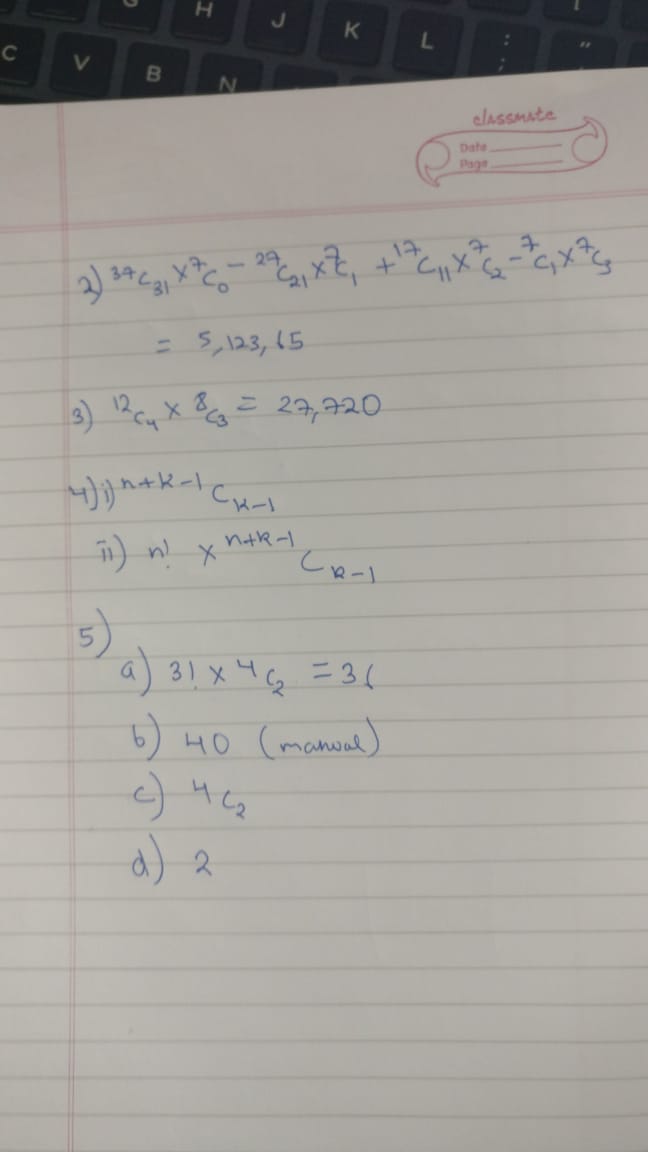 H J K L : ;
C V B N "
classmate
Date
Page
2) ³⁷C₃₁ x ⁷C₀ - ²⁷C₂₁ x ⁷C₁ + ¹⁷C₁₁ x ⁷C₂ - ⁷C₁ x ⁷C₃
= 5,123,65
3) ¹²C₄ x ⁸C₃ = 27,720
4) i) ⁿ⁺ᵏ⁻¹Cₖ₋₁
ii) n! x ⁿ⁺ᵏ⁻¹Cₖ₋₁
5)
a) 3! x ⁴C₂ = 36
b) 40 (manual)
c) ⁴C₂
d) 2